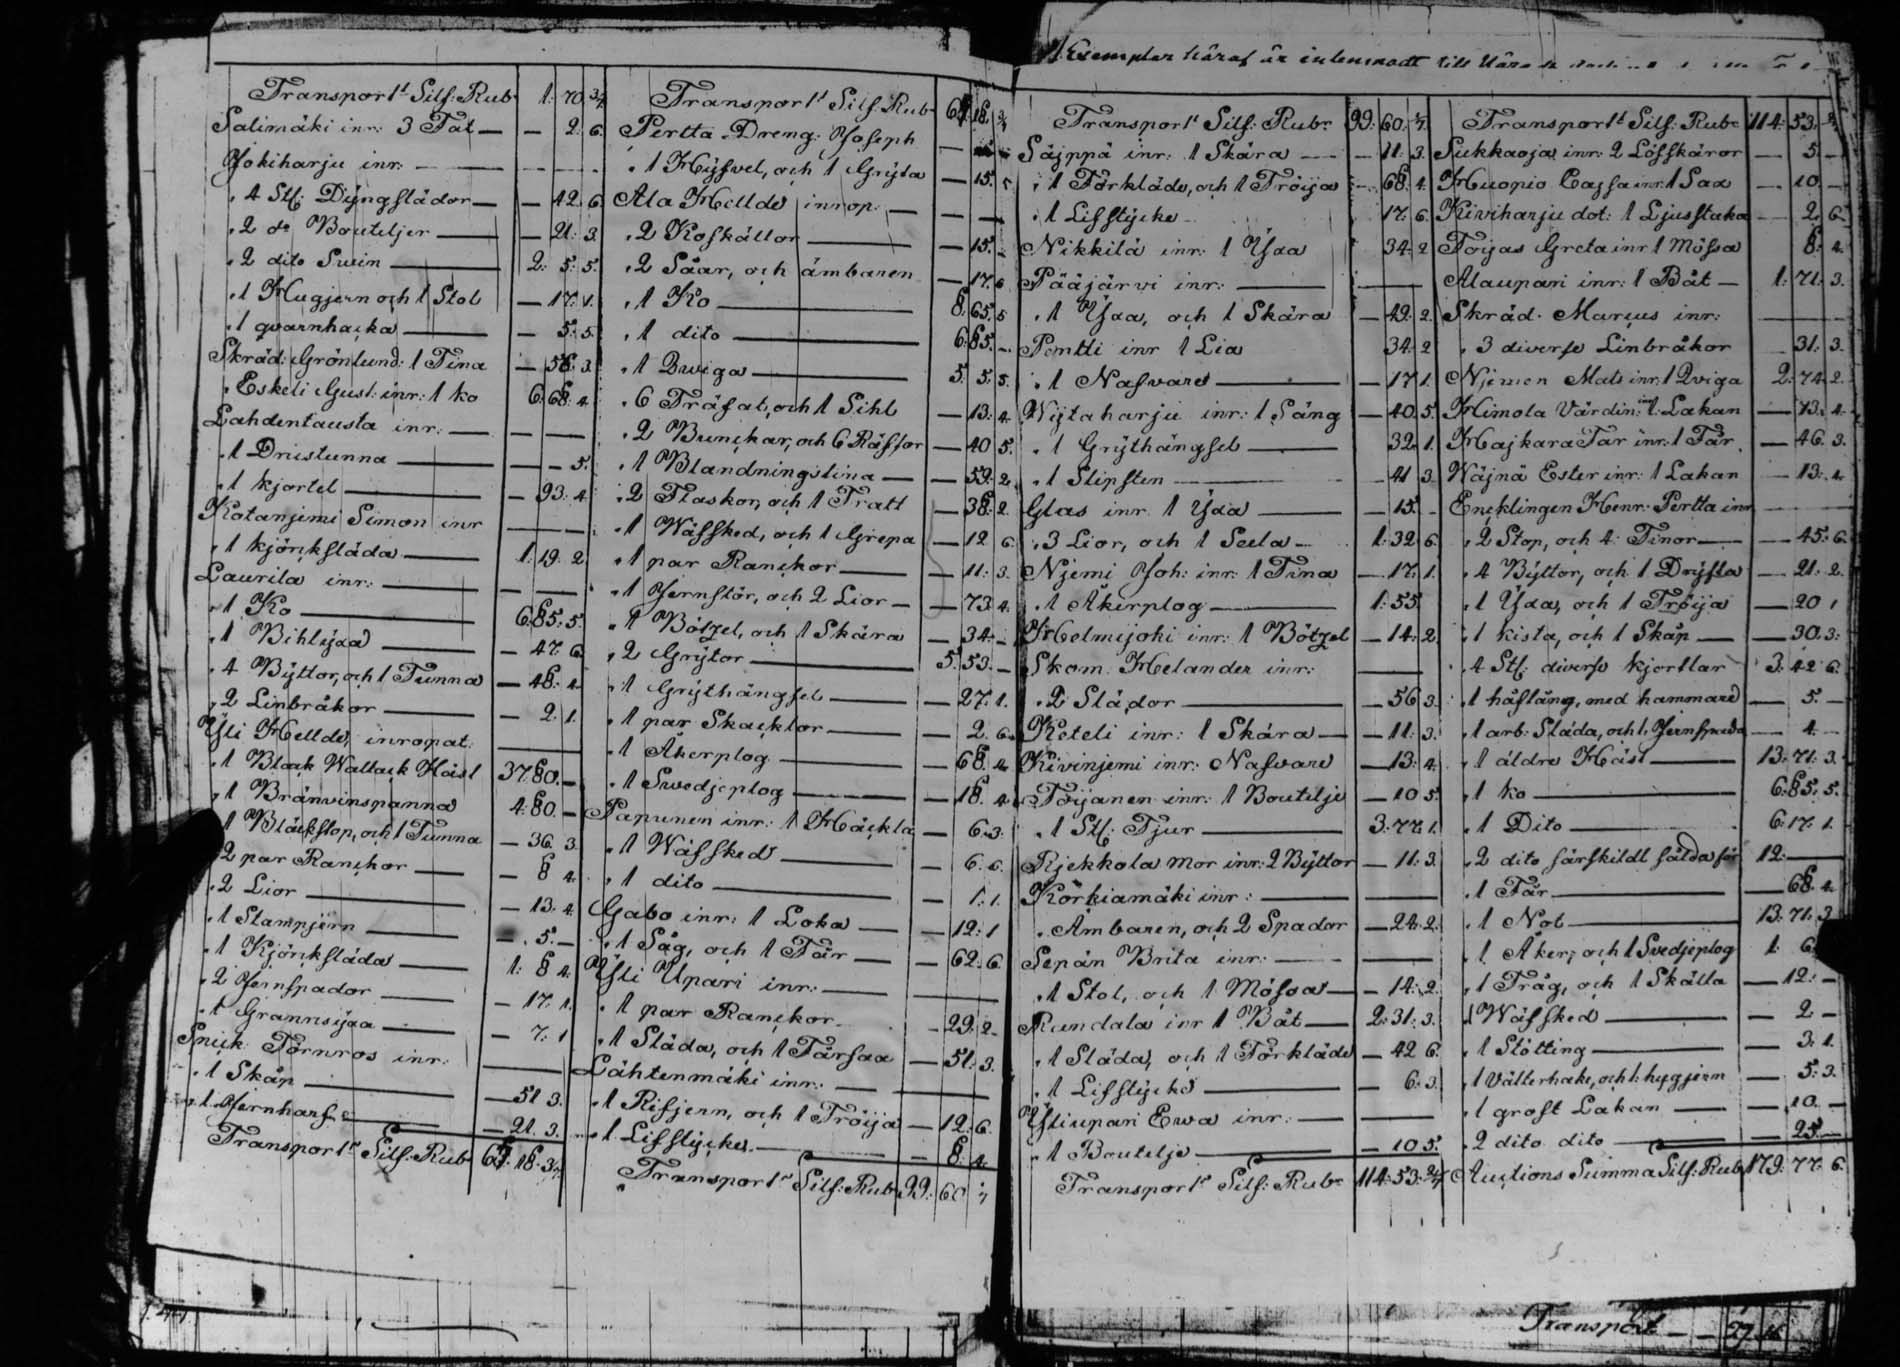 Transport Silf: Rub 1: 70 3/7
Salimäki inr: 3 Fat — — 2. 6.
Jokiharju inr: — — —
„ 4 St: Dÿngslädor — — 42. 6
„ 2 do Bouteljer — — 21. 3.
„ 2 dito Swin — 2: 5: 5.
„ 1 Hugjern och 1 Stol — 17. 1.
„ 1 qvarnhacka — — 5: 5.
Skräd: Grönlund: 1 Tina — 56: 3.
„ Eskeli Gust: inr: 1 ko 6: 68: 4.
Lahdentausta inr: — — —
„ 1 Dristunna — — — 5.
„ 1 kjortel — — 93: 4.
Kotanjemi Simon inr — — —
„ 1 kjörksläda — 1: 19. 2.
Laurila inr: — — —
„ 1 Ko — 6: 85: 5.
„ 1 Bihlÿxa — — 47. 6
„ 4 Bÿttor, och 1 Tunna — 48: 4.
„ 2 Linbråkor — — 2. 1.
Yli Helldé, inropat: —
„ 1 Black Wallack Häst 37: 80. —
„ 1 Bränvinspanna 4: 80. —
„ 1 Bläckstop, och 1 Tunna — 36. 3.
„ 2 par Ranckor — — 8 4.
„ 2 Lior — — 13. 4.
„ 1 Stampjern — — 5. —
„ 1 Kjörcksläda — 1: 8 4.
„ 2 Jernspador — — 17. 1.
„ 1 Grannsÿxa — — 7: 1
Snick: Törnros inr: —
„ 1 Skåp — — 51 3.
„ 1 Jernharf — — 21. 3.
Transport Silf: Rub 67: 18. 3/7
Transport Silf: Rub 67: 18. 3/7
Pertta Dreng: Joseph —
„ 1 Hÿfvel, och 1 Grÿta — 15. 5
Ala Helldé inrop: — — —
„ 2 Koskällor — — 15. —
„ 2 Såar, och ämbaren — 17. 6
„ 1 Ko — 8: 65. 5
„ 1 dito — 6: 85. —
„ 1 Qwiga — 5: 5: 5.
„ 6 Träfat, och 1 Sihl — 13: 4.
„ 2 Bunckar, och 6 Räfsor — 40 5.
„ 1 Blandningstina — — 59: 2.
„ 2 Flaskor, och 1 Tratt — 38: 2.
„ 1 Wäfsked, och 1 Grepa — 12 6.
„ 1 par Ranckor — — 11: 3.
„ 1 Jernstör, och 2 Lior — — 73. 4.
„ 1 Bötzel, och 1 Skära — 34. —
„ 2 Grÿtor — 5: 53. —
„ 1 Grÿthängsel — — 27. 1.
„ 1 par Skacklor — — 2. 6.
„ 1 Åkerplog — — 68. 4.
„ 1 Swedjeplog — — 18. 4
Papunen inr: 1 Häckla — 6: 3.
„ 1 Wäfsked — — 6. 6.
„ 1 dito — — 1. 1.
Gabo inr: 1 Loka — — 12: 1
„ 1 Såg, och 1 Får — — 62. 6.
Yli Upari inr: — —
„ 1 par Ranckor — 29. 2.
„ 1 Släda, och 1 Fårsax — 51. 3.
Lähtenmäki inr: — —
„ 1 Rifjern, och 1 Tröija — 12: 6.
„ 1 Lifstÿcke — — 8. 4.
Transport Silf: Rub 99: 60 1/7
1 Exemplar häraf är inlemnadt till
Transport Silf: Rub: 99: 60. 1/7
Säjppä inr: 1 Skära — — 11: 3.
„ 1 Förkläde, och 1 Tröija — 68. 4.
„ 1 Lifstÿcke — 17: 6.
Nikkilä inr: 1 Yxa 34: 2
Pääjärvi inr: — —
„ 1 Yxa, och 1 Skära — 42: 2.
Pentti inr 1 Lia 34: 2
„ 1 Nafvare — — 17 1.
Wÿtaharju inr: 1 Säng — 40: 5.
„ 1 Grÿthängsel — 32. 1.
„ 1 Slipsten — — 41 3.
Glas inr 1 Yxa — — 15. —
„ 3 Lior, och 1 Seela — 1: 32 6.
Njemi Joh: inr: 1 Tina — 17. 1.
„ 1 Åkerplog — 1: 55.
Helmijoki inr: 1 Bötzel — 14: 2.
Skom: Helander inr: —
„ 2 Slädor — — 56 3.
Keteli inr: 1 Skära — — 11: 3.
Kivinjemi inr: Nafvare — 13: 4.
Töijanen inr: 1 Boutelje — 10 5.
„ 1 St: Tjur — 3: 77. 1.
Rjekkola Mor inr: 2 Bÿttor — 11: 3.
Körkiämäki inr: — —
„ Ämbaren, och 2 Spador — 24: 2.
Sepän Brita inr: — —
„ 1 Stol, och 1 Mössa — — 14: 2.
Rundala inr 1 Båt — 2: 31: 3.
„ 1 Släda, och 1 Förkläde — 42 6.
„ 1 Lifstÿcke — — 6: 3.
Yliupari Ewa inr: — —
„ 1 Boutelje — — 10 5.
Transport Silf: Rub: 114: 53: 2/7
Transport Silf: Rub: 114: 53. 2/7
Sukkaoja inr: 2 Löfskäror — 5. —
Huopio Cajsa inr: 1 Sax — 10. —
Kiviharju dot: 1 Ljusstaka — 2. 6.
Toijas Greta inr 1 Mössa — 8: 4.
Alaupari inr: 1 Båt — 1: 71: 3.
Skräd. Marcus inr: —
„ 3 diverse Linbråkor — 31: 3.
Njemen Mats inr: 1 Qviga 2: 74: 2.
Himola Värdin: inr: 1 Lakan — 13. 4.
Hajkara Far inr: 1 Får — 46. 3.
Wäjnä Ester inr: 1 Lakan — 13: 4.
Encklingen Henr: Pertta inr —
„ 2 Stop, och 4 Tinor — — 45: 6.
„ 4 Bÿttor, och 1 Drÿfta — 21: 2.
„ 1 Yxa, och 1 Tröija — 20 1
„ 1 kista, och 1 Skåp — — 30. 3:
„ 4 St: diverse kjortlar 3: 42 6.
„ 1 håfstång, med hammare — 5. —
„ 1 arb: Släda, och 1 Jernspada — 4. —
„ 1 äldre Häst — 13: 71: 3.
„ 1 ko — 6: 85: 5.
„ 1 Dito — 6: 17. 1.
„ 2 dito särskildt sålda för 12: —
„ 1 Får — — 68. 4.
„ 1 Not — 13: 71: 3
„ 1 Åker, och 1 Svedjeplog 1: 6.
„ 1 Tråg, och 1 Skälla — 12: —
„ 1 Wäfsked — — 2 —
„ 1 Slötting — — 3. 1.
„ 1 Välterhake, och 1 hyggjern — 5: 3.
„ 1 groft Lakan — — 10. —
„ 2 dito dito — — 25 —
Auctions Summa Silf: Rub 179: 77. 6.
Transport — 29 16